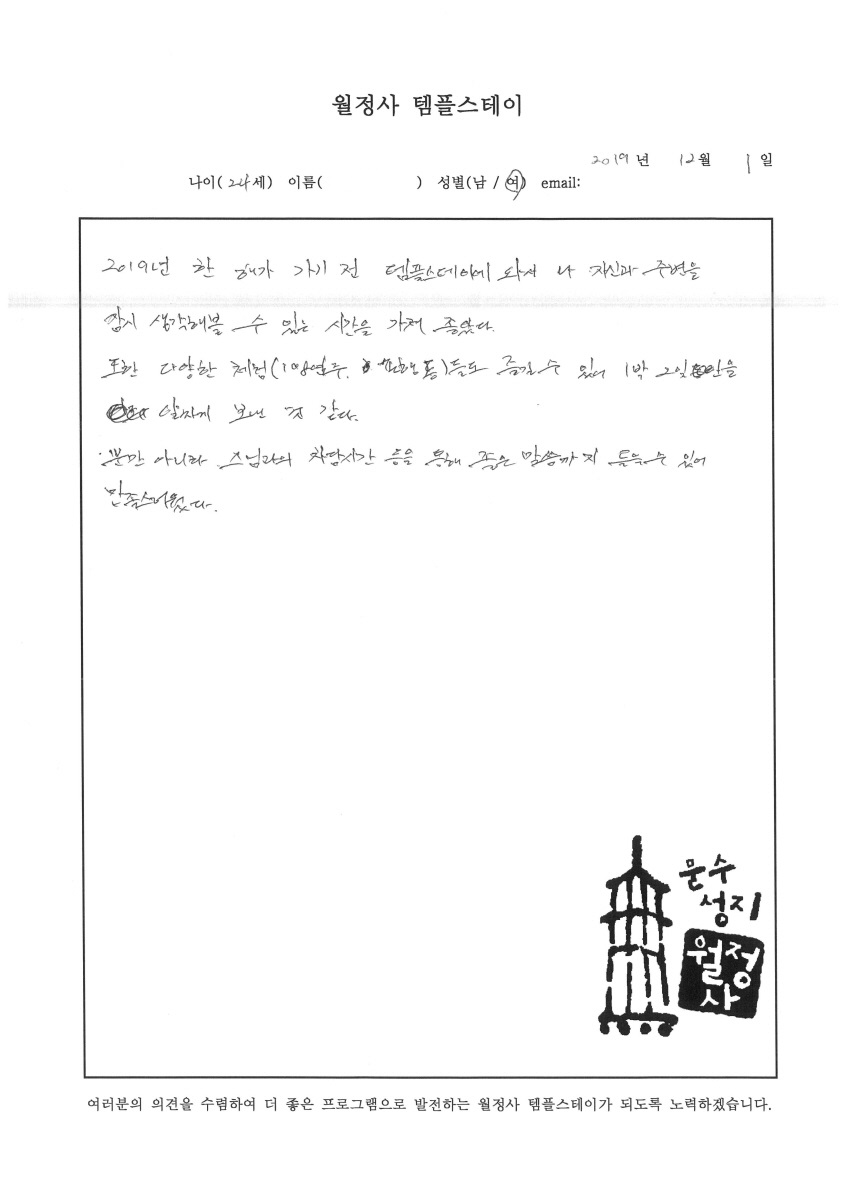 월정사 템플스테이
2019년 12월 1일
나이(24세) 이름( ) 성별(남 / 여) email:
2019년 한 해가 가기 전 템플스테이에 와서 나 자신과 주변을
잠시 생각해볼 수 있는 시간을 가져 좋았다.
또한 다양한 체험( 등)들도 즐길 수 있어 1박 2일 을
알차게 보낸 것 같다.
뿐만 아니라 스님과의 차담시간 등을 통해 좋은 말씀까지 들을 수 있어
만족스러웠다.
문수
성지
월정
사
여러분의 의견을 수렴하여 더 좋은 프로그램으로 발전하는 월정사 템플스테이가 되도록 노력하겠습니다.